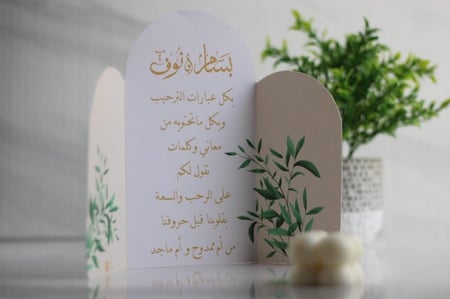 بسام & نوف
بكل عبارات الترحيب
وبكل ماتحتويه من
معاني وكلمات
نقول لكم
على الرحب والسعة
بقلوبنا قبل حروفنا
من أم ممدوح و أم ماجد